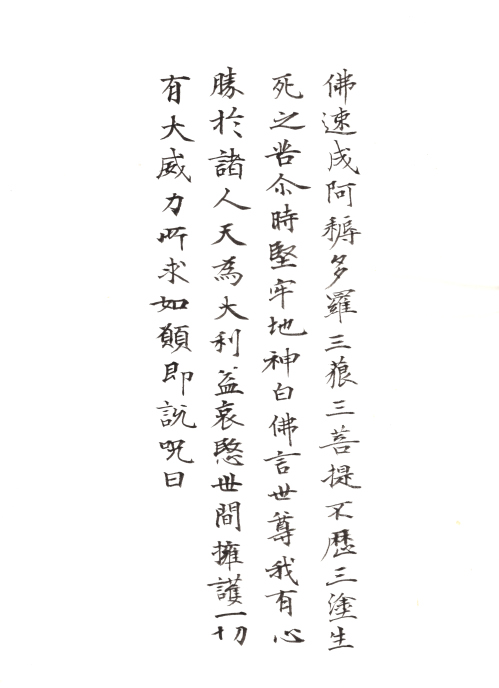 佛速成阿耨多羅三藐三菩提不歷三塗生
死之苦尒時堅牢地神白佛言世尊我有心
勝於諸人天為大利益哀愍世間擁護一切
有大威力所求如願即説呪曰